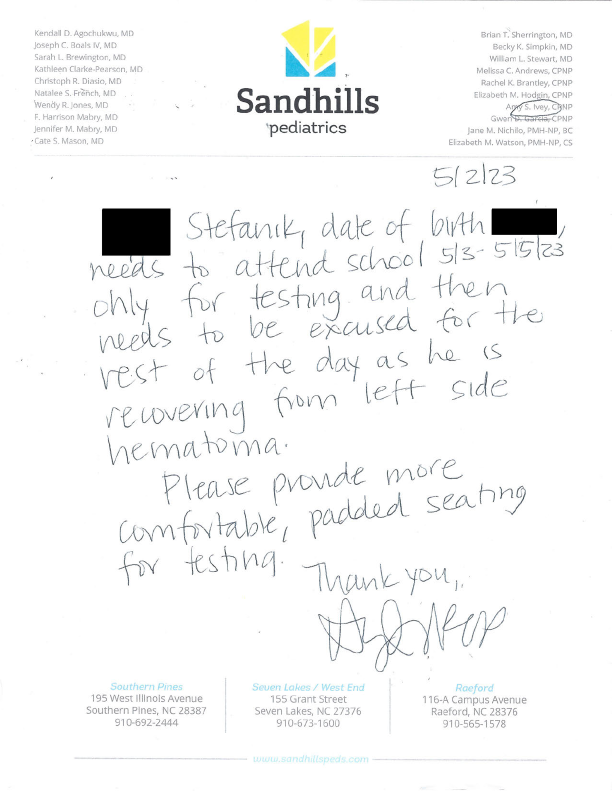 Kendall D. Agochukwu, MD
Joseph C. Boals IV, MD
Sarah L. Brewington, MD
Kathleen Clarke-Pearson, MD
Christoph R. Diasio, MD
Natalee S. French, MD
Wendy R. Jones, MD
F. Harrison Mabry, MD
Jennifer M. Mabry, MD
Cate S. Mason, MD
Sandhills
pediatrics
Brian T. Sherrington, MD
Becky K. Simpkin, MD
William L. Stewart, MD
Melissa C. Andrews, CPNP
Rachel K. Brantley, CPNP
Elizabeth M. Hodgin, CPNP
Amy S. Ivey, CPNP
Gwen D. Garcia, CPNP
Jane M. Nichilo, PMH-NP, BC
Elizabeth M. Watson, PMH-NP, CS
5/2/23
Stefanik, date of birth ,
needs to attend school 5/3-5/5/23
only for testing and then
needs to be excused for the
rest of the day as he is
recovering from left side
hematoma.
Please provide more
comfortable, padded seating
for testing.
Thank you,
Southern Pines
195 West Illinois Avenue
Southern Pines, NC 28387
910-692-2444
Seven Lakes / West End
155 Grant Street
Seven Lakes, NC 27376
910-673-1600
Raeford
116-A Campus Avenue
Raeford, NC 28376
910-565-1578
www.sandhillspeds.com